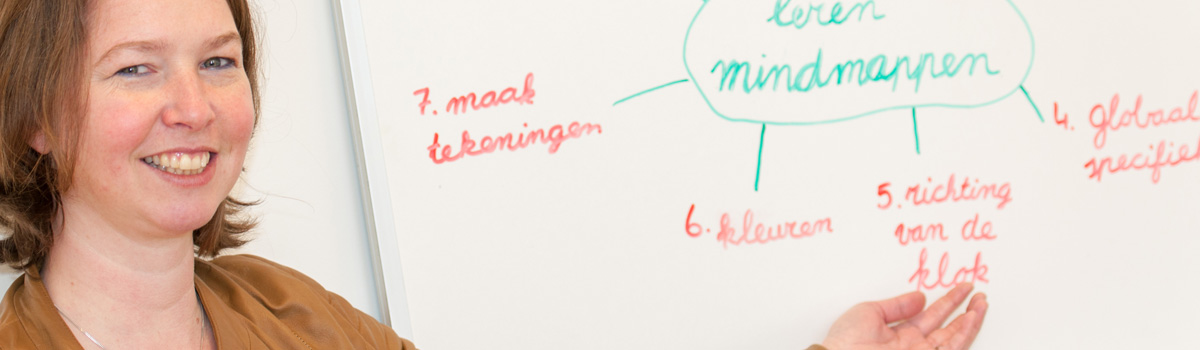 leren
mindmappen
7. maak
tekeningen
6. kleuren
5. richting
van de
klok
4. globaal
specifiek